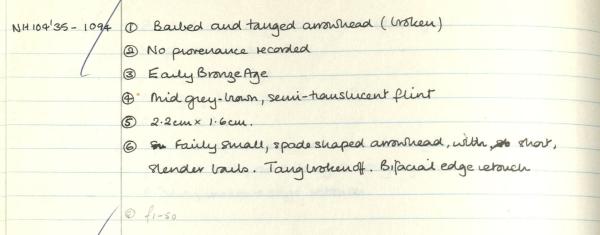 NH104'35 - 1094 ① Barbed and tanged arrowhead (broken)
② No provenance recorded
③ Early Bronze Age
④ Mid grey-brown, semi-translucent flint
⑤ 2.2cm x 1.6cm.
⑥ Fairly small, spade shaped arrowhead, with short,
slender barbs. Tang broken off. Bifacial edge retouch
② f1-50